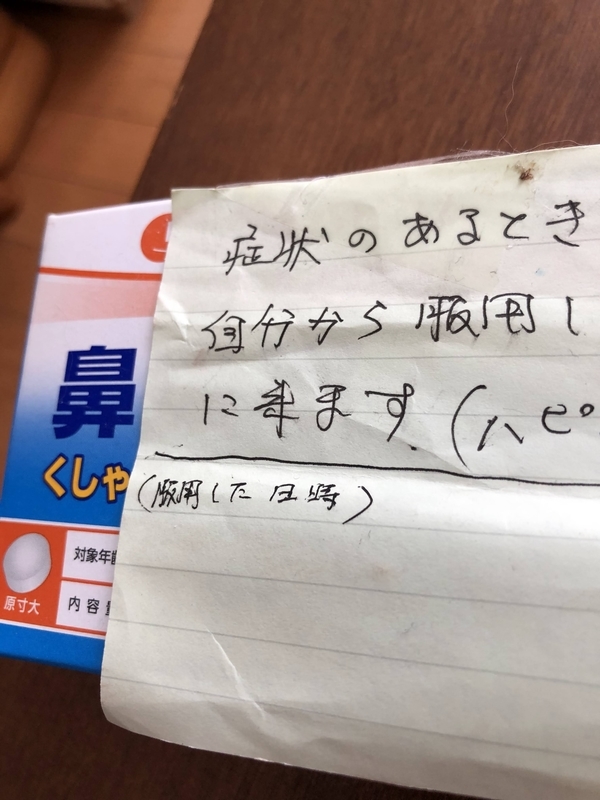 症状のあるとき
自分から服用し
に来ます(ハピ
(服用した日時)
鼻
くしゃ
対象年齢
原寸大
内容量